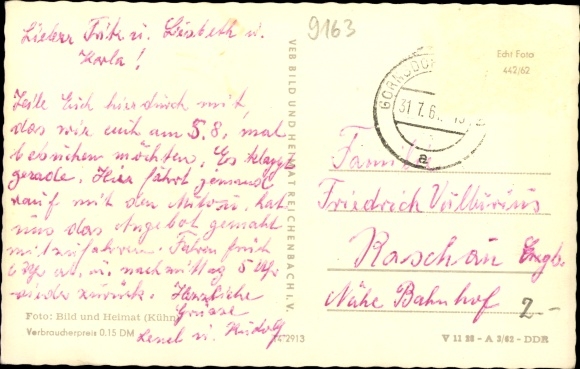 9163
Lieber Fritz u. Lisbeth u.
Karla!
Teile Euch hierdurch mit,
das wir euch am 5.8. mal
besuchen möchten. Es klappt
gerade. Hier fährt jemand
rauf mit den Auto u. hat
uns das Angebot gemacht
mitzufahren. Fahren früh
6 Uhr ab, u. nachmittag 5 Uhr
wieder zurück. Herzliche
Grüsse
Lenel u. Rudolf
Foto: Bild und Heimat (Kühn)
Verbraucherpreis 0.15 DM
4/2913
VEB BILD UND HEIMAT REICHENBACH I. V.
Echt Foto
442/62
31.7.6
a
Familie
Friedrich
Raschau Erzgb.
Nähe Bahnhof
2-
V 11 28 - A 2/62 - DDR